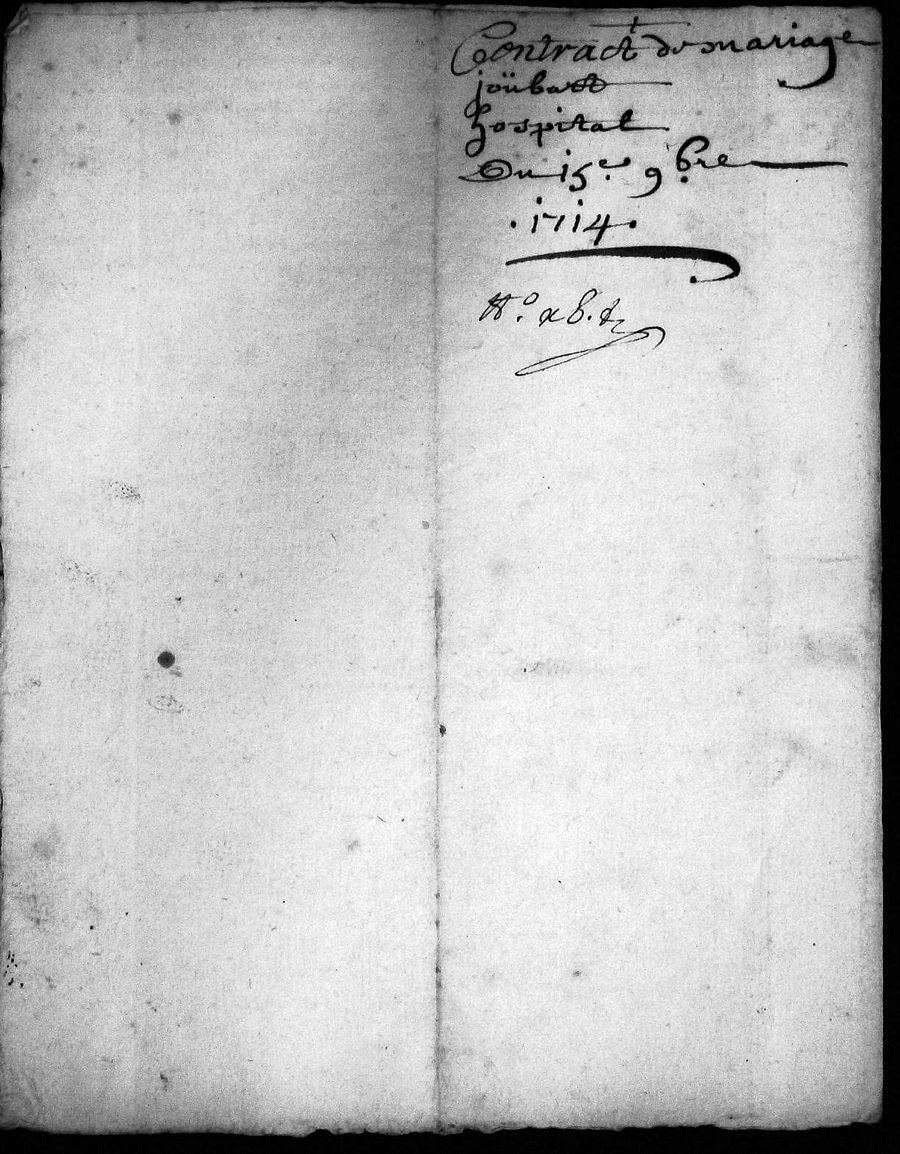 Contract de mariage
joübart
hospital
Du 15e 9bre
.1714.